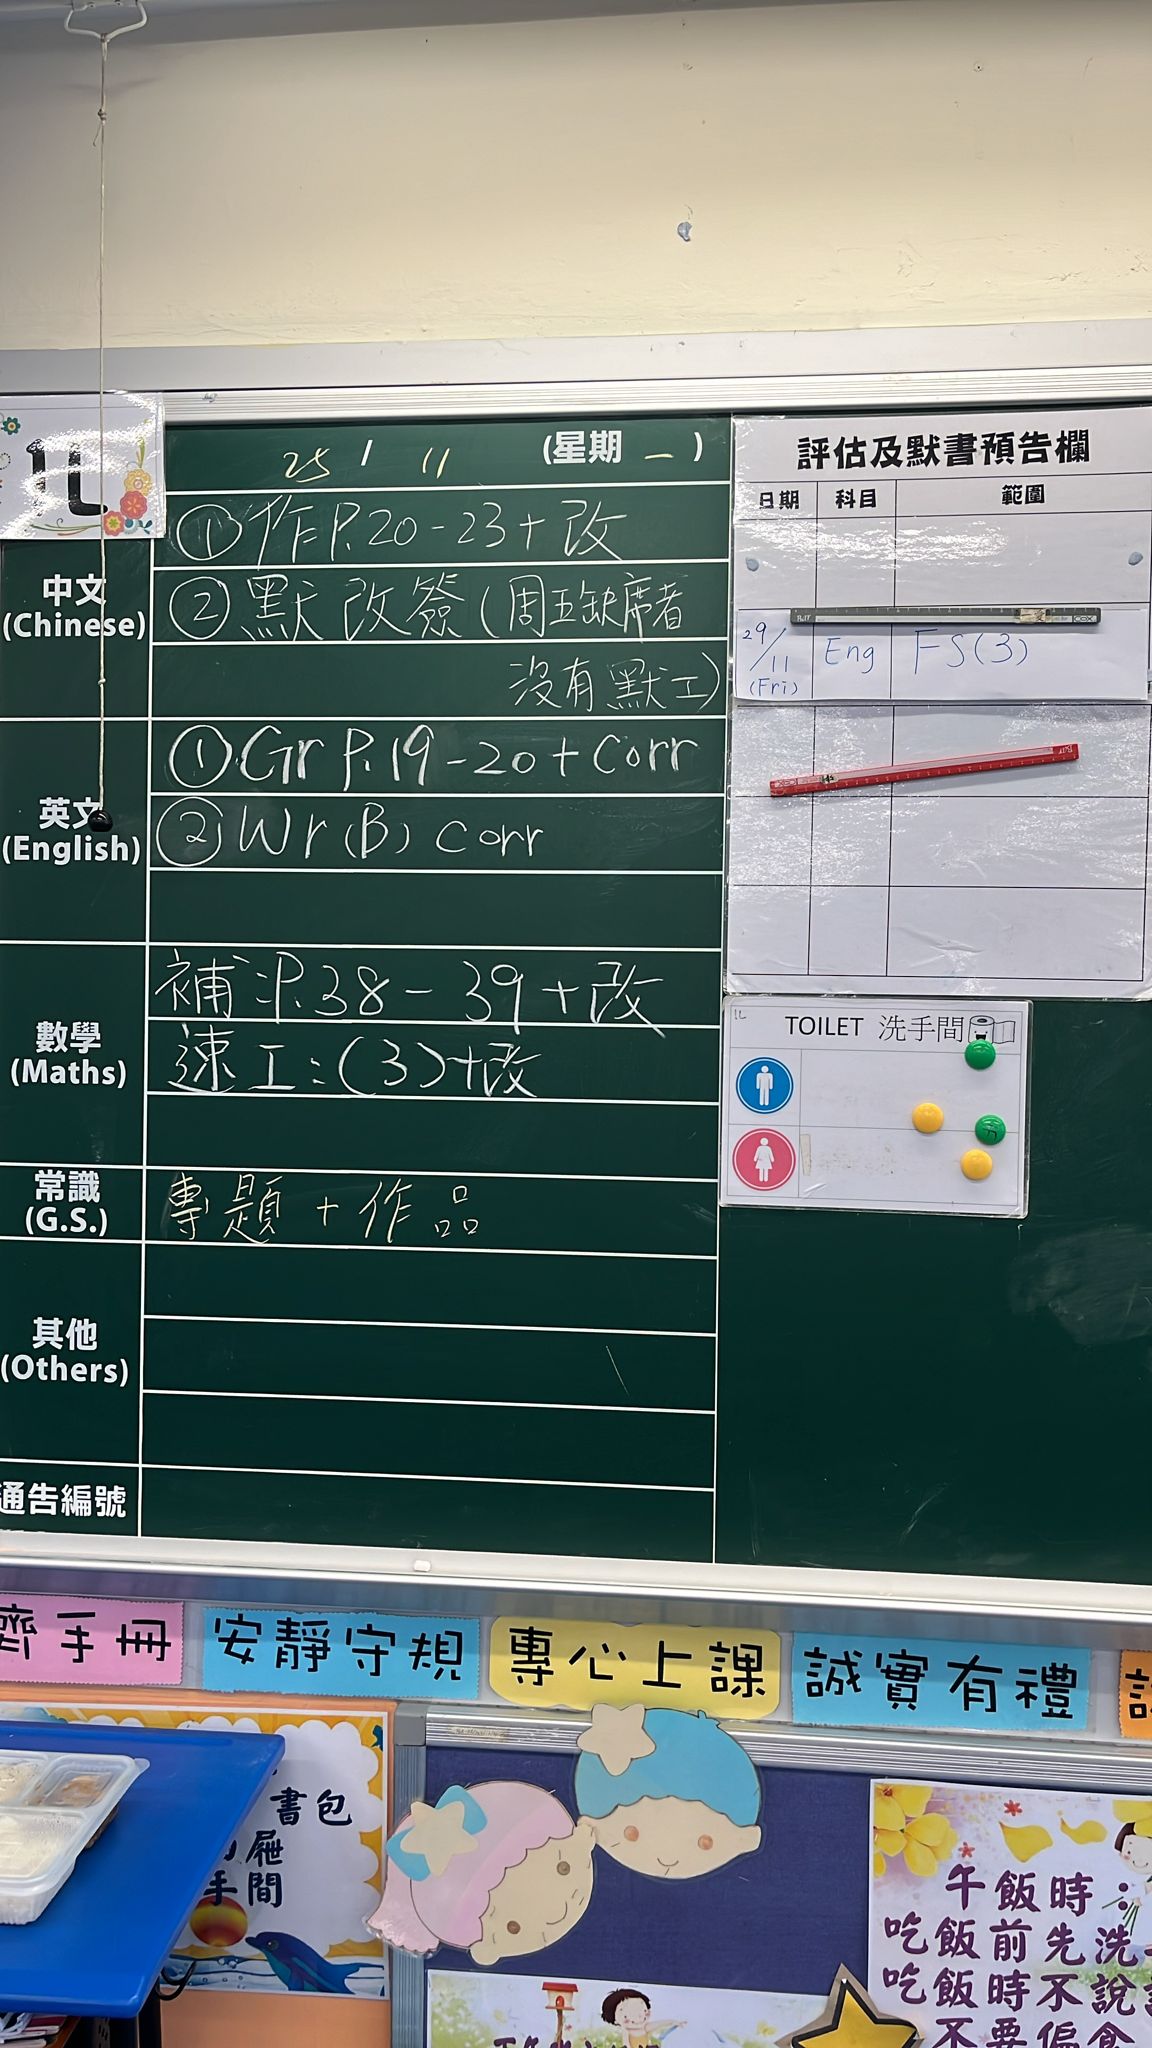 1L
25 / 11 (星期 一 )
中文
(Chinese)
① 作 P.20-23+改
② 默 改簽 (周五缺席者
沒有默工)
英文
(English)
① Gr P.19-20+Corr
② Wr (B) Corr
數學
(Maths)
補 P.38-39+改
速工:(3)+改
常識
(G.S.)
專題+作品
其他
(Others)
通告編號
評估及默書預告欄
日期 科目 範圍
29/11 (Fri) Eng FS(3)
1L
TOILET 洗手間
齊手冊
安靜守規
專心上課
誠實有禮
書包
手間
午飯時:
吃飯前先洗
吃飯時不說
不要偏食